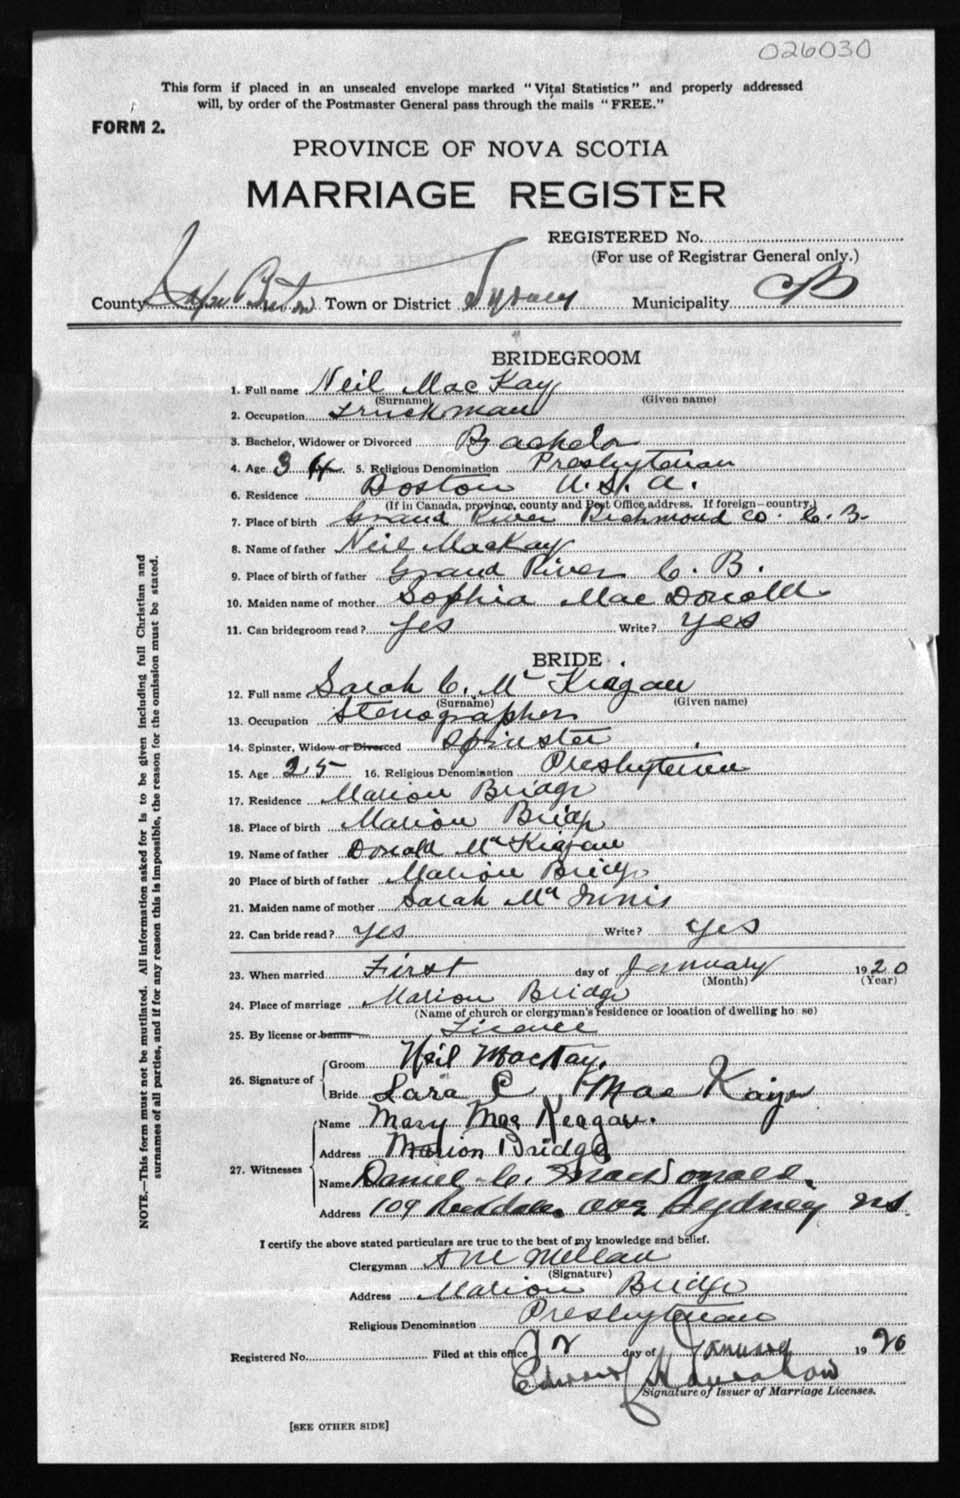 026030
This form if placed in an unsealed envelope marked "Vital Statistics" and properly addressed
will, by order of the Postmaster General pass through the mails "FREE."
FORM 2.
PROVINCE OF NOVA SCOTIA
MARRIAGE REGISTER
REGISTERED No.
(For use of Registrar General only.)
County Cape Breton Town or District Sydney Municipality CB
BRIDEGROOM
1. Full name Neil MacKay
(Surname) (Given name)
2. Occupation Truckman
3. Bachelor, Widower or Divorced Bachelor
4. Age 34 5. Religious Denomination Presbyterian
6. Residence Boston U.S.A.
(If in Canada, province, county and Post Office address. If foreign—country.)
7. Place of birth Grand River Richmond Co. C.B.
8. Name of father Neil MacKay
9. Place of birth of father Grand River C.B.
10. Maiden name of mother Sophia MacDonald
11. Can bridegroom read? Yes Write? Yes
BRIDE.
12. Full name Sarah C. Mc Keagan
(Surname) (Given name)
13. Occupation Stenographer
14. Spinster, Widow or Divorced Spinster
15. Age 25 16. Religious Denomination Presbyterian
17. Residence Marion Bridge
18. Place of birth Marion Bridge
19. Name of father Donald McKeagan
20 Place of birth of father Marion Bridge
21. Maiden name of mother Sarah McInnis
22. Can bride read? Yes Write? Yes
23. When married First day of January 1920
(Month) (Year)
24. Place of marriage Marion Bridge
(Name of church or clergyman's residence or location of dwelling house)
25. By license or banns Licence
26. Signature of
Groom Neil MacKay.
Bride Sara C. Mac
27. Witnesses
Name Mary MacKeagan.
Address Marion Bridge
Name Daniel C. MacDonald.
Address 109 Ave Sydney NS.
I certify the above stated particulars are true to the best of my knowledge and belief.
Clergyman
(Signature)
Address Marion Bridge
Religious Denomination Presbyterian
Registered No. Filed at this office day of January 1920
Edward
Signature of Issuer of Marriage Licenses.
[SEE OTHER SIDE]
NOTE.—This form must not be mutilated. All information asked for is to be given including full Christian and
surnames of all parties, and if for any reason this is impossible, the reason for the omission must be stated.